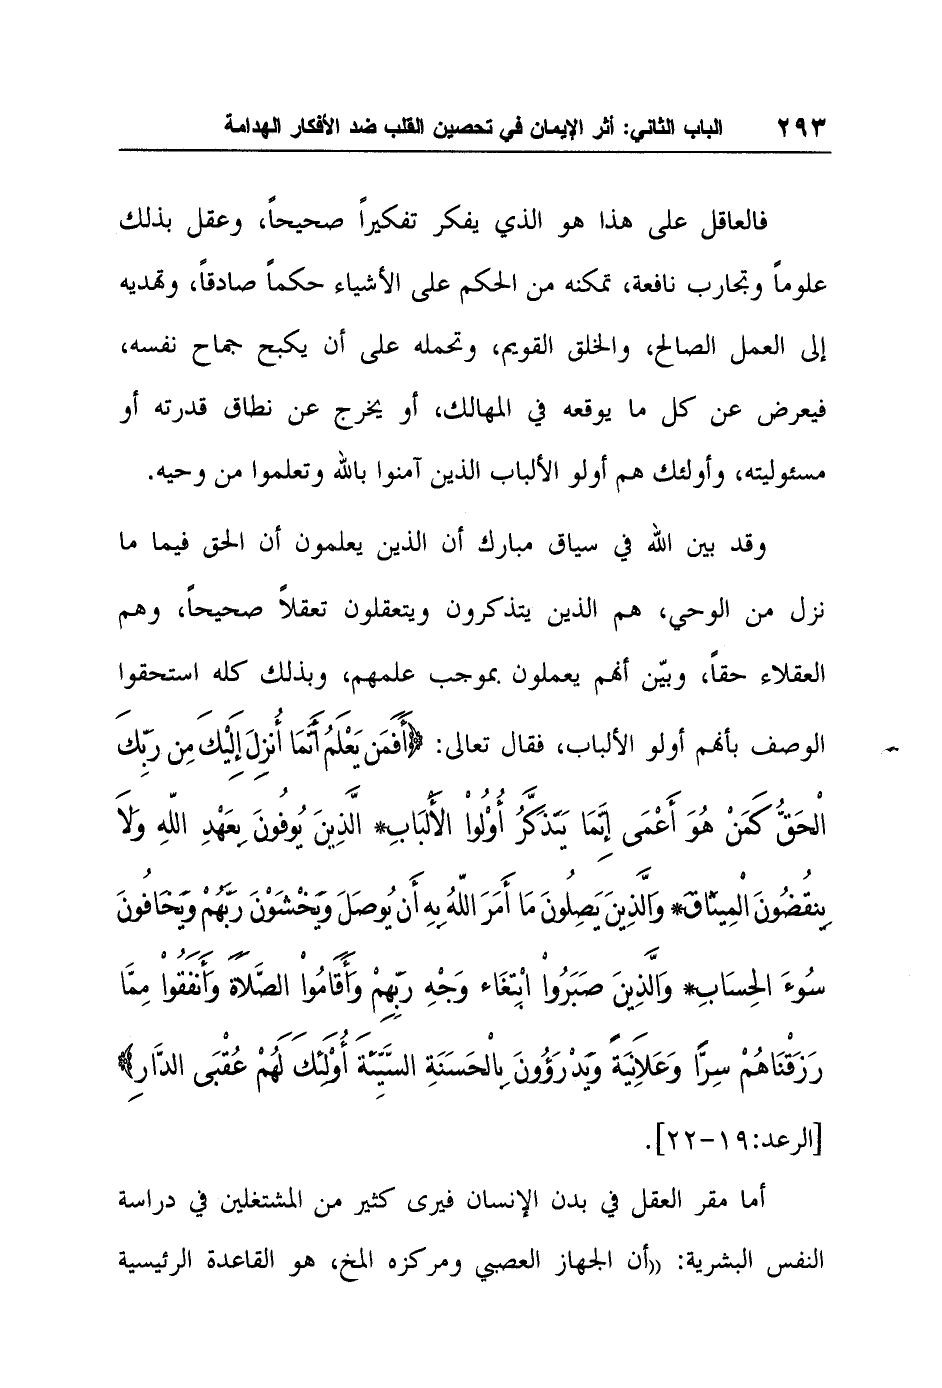 ٢٩٣ الباب الثاني: أثر الإيمان في تحصين القلب ضد الأفكار الهدامة
فالعاقل على هذا هو الذي يفكر تفكيراً صحيحاً، وعقل بذلك
علوماً وتجارب نافعة، تمكنه من الحكم على الأشياء حكماً صادقاً، وتهديه
إلى العمل الصالح، والخلق القويم، وتحمله على أن يكبح جماح نفسه،
فيعرض عن كل ما يوقعه في المهالك، أو يخرج عن نطاق قدرته أو
مسئوليته، وأولئك هم أولو الألباب الذين آمنوا بالله وتعلموا من وحيه.
وقد بين الله في سياق مبارك أن الذين يعلمون أن الحق فيما ما
نزل من الوحي، هم الذين يتذكرون ويتعقلون تعقلاً صحيحاً، وهم
العقلاء حقاً، وبيّن أنهم يعملون بموجب علمهم، وبذلك كله استحقوا
الوصف بأنهم أولو الألباب، فقال تعالى: ﴿أَفَمَن يَعْلَمُ أَنَّمَا أُنزِلَ إِلَيْكَ مِن رَبِّكَ
الْحَقُّ كَمَنْ هُوَ أَعْمَى إِنَّمَا يَتَذَكَّرُ أُوْلُوا الأَلْبَابِ* الَّذِينَ يُوفُونَ بِعَهْدِ اللّهِ وَلاَ
يِنقُضُونَ الْمِيثَاقَ* وَالَّذِينَ يَصِلُونَ مَا أَمَرَ اللّهُ بِهِ أَن يُوصَلَ وَيَخْشَوْنَ رَبَّهُمْ وَيَخَافُونَ
سُوءَ الحِسَابِ* وَالَّذِينَ صَبَرُوا ابْتِغَاء وَجْهِ رَبِّهِمْ وَأَقَامُوا الصَّلاَةَ وَأَنفَقُوا مِمَّا
رَزَقْنَاهُمْ سِرًّا وَعَلاَنِيَةً وَيَدْرَؤُونَ بِالْحَسَنَةِ السَّيِّئَةَ أُوْلَئِكَ لَهُمْ عُقْبَى الدَّارِ﴾
[الرعد:١٩-٢٢].
أما مقر العقل في بدن الإنسان فيرى كثير من المشتغلين في دراسة
النفس البشرية: ((أن الجهاز العصبي ومركزه المخ، هو القاعدة الرئيسية